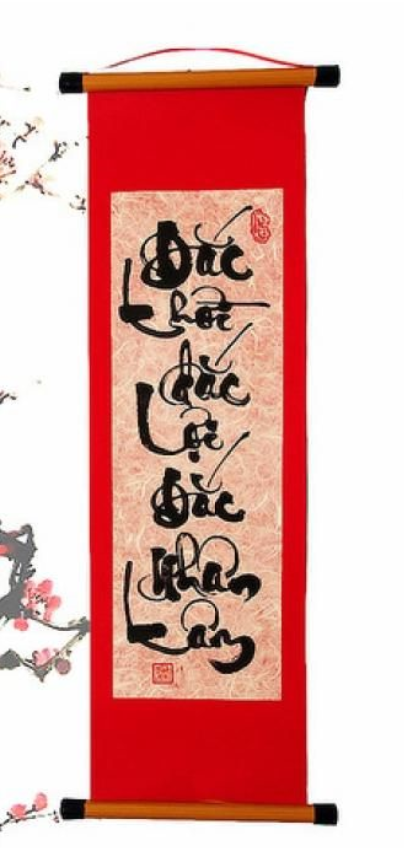 Đắc
thời
đắc
Lợi
Đắc
Nhân
Tâm